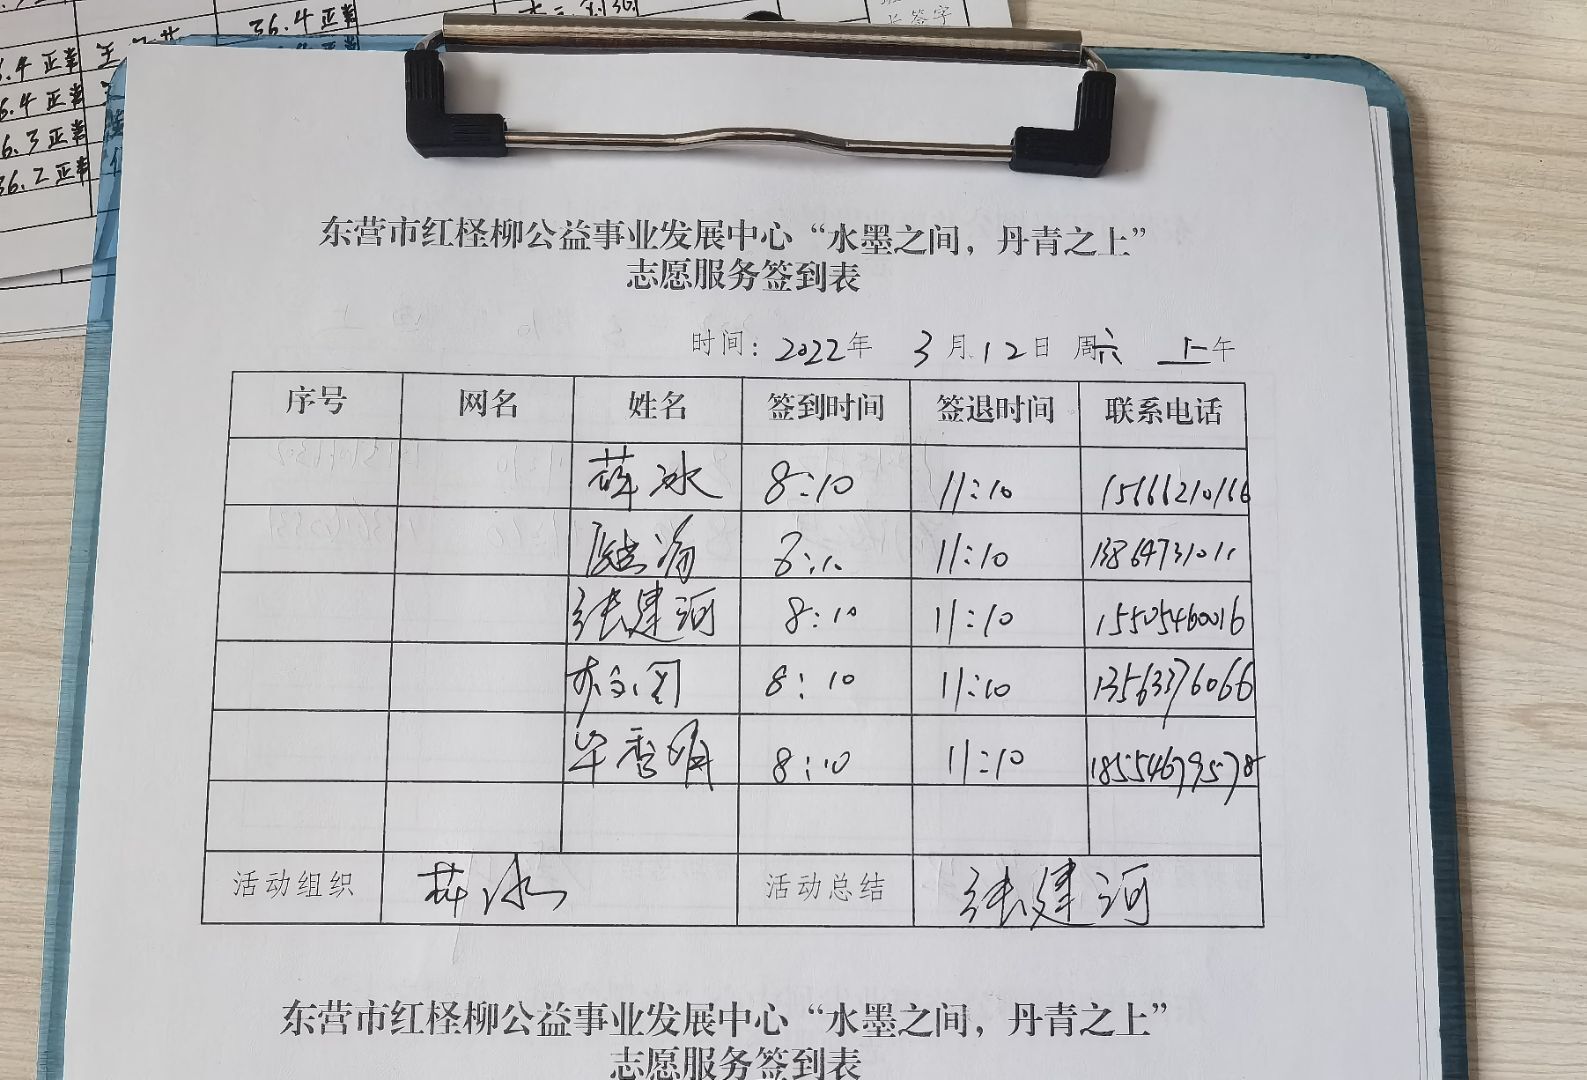 36.4 正常
6.4 正常
6.4 正常
6.3 正常
36.2 正常
签字
东营市红柽柳公益事业发展中心“水墨之间，丹青之上”
志愿服务签到表
时间：2022年 3月12日 周六 上午
序号 网名 姓名 签到时间 签退时间 联系电话
薛冰 8:10 11:10 15166210166
8:10 11:10 13864731011
张建河 8:10 11:10 15505460016
8:10 11:10 13563376066
毕秀娟 8:10 11:10 18554679578
活动组织 薛冰 活动总结 张建河
东营市红柽柳公益事业发展中心“水墨之间，丹青之上”
志愿服务签到表